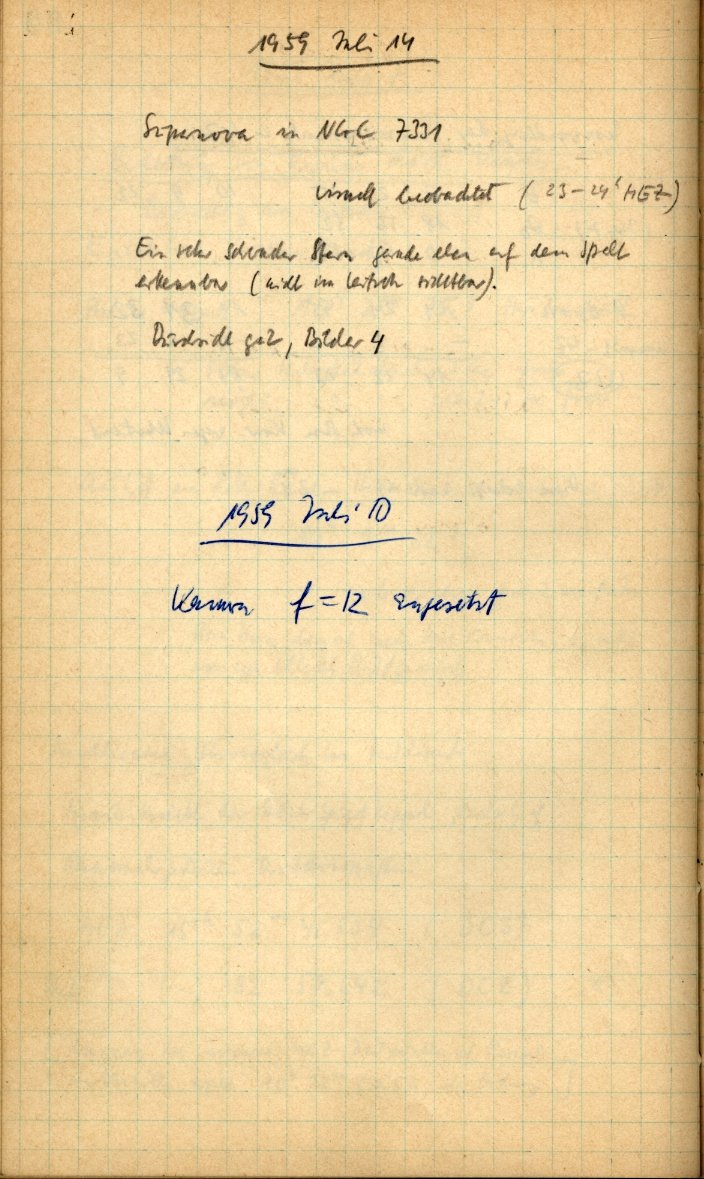 1959 Juli 14
Supernova in NGC 7331
visuell beobachtet (23-24ʰ MEZ)
Ein sehr schwacher Stern gerade eben auf dem Spalt
erkennbar (nicht im Leitrohr sichtbar).
Durchsicht gut, Bilder 4
1959 Juli 10
Kamera f=12 angesetzt